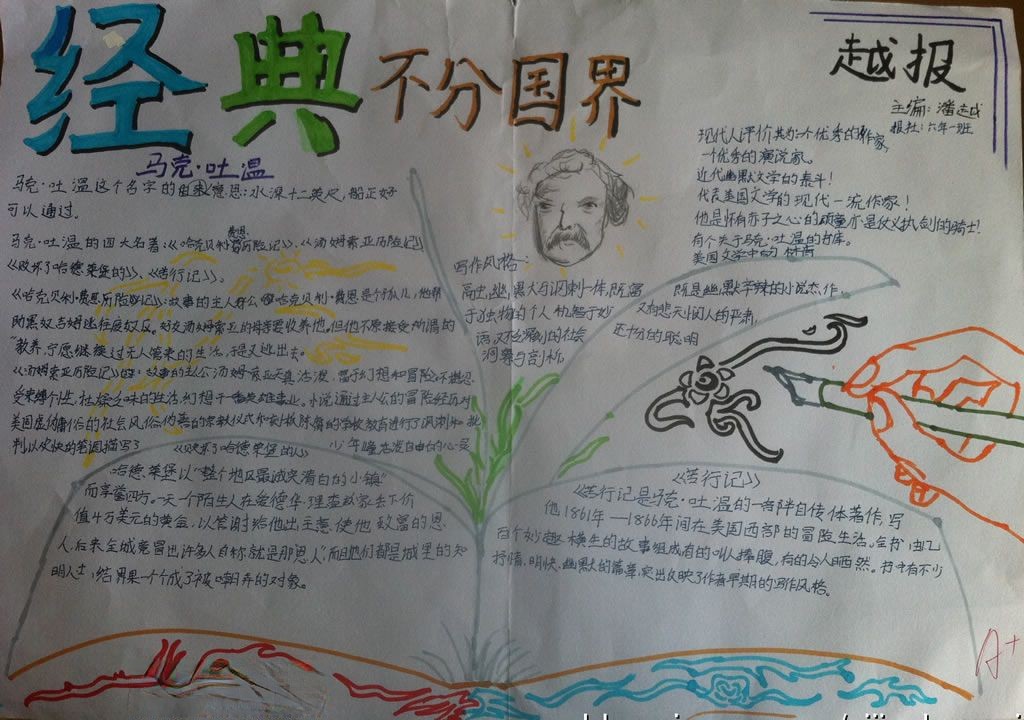 经典不分国界
越报
主编：潘越
报社：六年一班
马克·吐温
马克·吐温这个名字的由来意思：水深十二英尺，船正好
可以通过。
马克·吐温的四大名著：《哈克贝利·费恩历险记》、《汤姆索亚历险记》
《败坏了哈德莱堡的》、《苦行记》。
《哈克贝利·费恩历险记》：故事的主人好
哈克贝利·费恩是个孤儿，他帮
助黑奴吉姆逃往废奴区。好友汤姆索亚的
要收养他。但他不愿接受所谓的
"教养，宁愿继续过无人管束的生活，于是又逃出去。
《汤姆索亚历险记》：故事的主公汤姆索亚天真活泼，富于幻想和冒险，不堪忍
受束缚个性、枯燥乏味的生活，幻想干一番英雄事业。小说通过主人公的冒险经历，对
美国虚伪庸俗的社会风俗、伪善的宗教仪式和刻板陈腐的学校教育进行了讽刺和批
判以欢快的笔调描写了
少年
自由的心灵
《败坏了哈德莱堡的人》
哈德莱堡以"整个地区最诚实清白的小镇"
而享誉四方。一天一个陌生人在爱德华·理查兹家丢下价
值4万美元的黄金，以答谢给他出主意使他致富的恩
人，后来全城竟冒出许多人自称就是那"恩人"而且他们都是城里的知
明人士，结果一个个成了被嘲弄的对象。
写作风格：
高出，幽默与讽刺一体，既富
于独特的个人机智于妙
语，又不乏深刻的社会
洞察与剖析，
既是幽默辛辣的小说杰作，
又有悲天悯人的严肃，
还十分的聪明
现代人评价其为：个优秀的作家，
一个优秀的演说家。
近代幽默文学的泰斗！
代表美国文学的现代一流作家！
他是怀有赤子之心的顽童亦是仗义执剑的骑士！
有个关于马克·吐温的
美国文学中的林肯
《苦行记》
《苦行记是马克·吐温的一部半自传体著作，写
他1861年—1866年间在美国西部的冒险生活。全书由几
百个妙趣横生的故事组成有的叫人捧腹，有的令人哂然。书中有不少
抒情、明快、幽默的篇章，突出反映了作者早期的写作风格。
A+